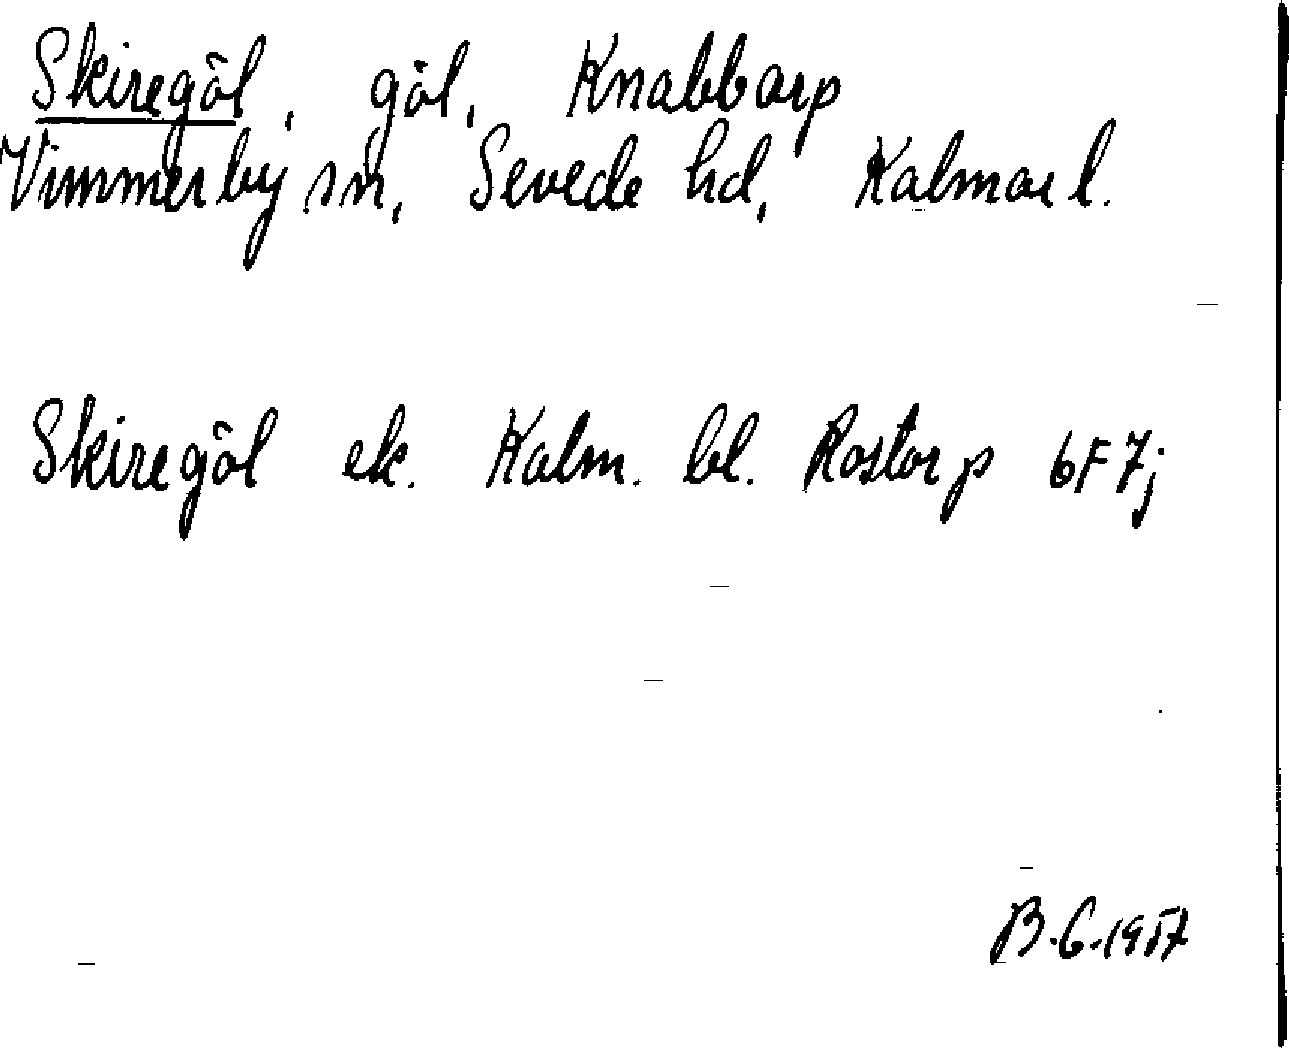 Skiregöl, göl, Knabbarp
Vimmerby sn, Sevede hd, Kalmar l.
Skiregöl ek. Kalm. bl. Rostorp 6F7j
B.G.1957